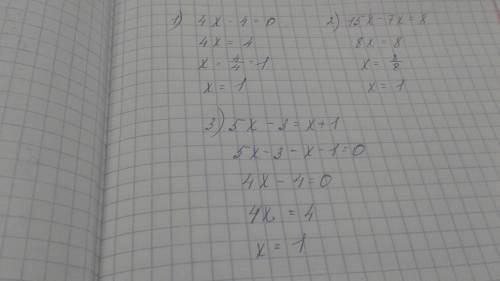 1) 4x - 4 = 0
4x = 4
x = 4/4 = 1
x = 1
2) 15x - 7x = 8
8x = 8
x = 8/8
x = 1
3) 5x - 3 = x + 1
5x - 3 - x - 1 = 0
4x - 4 = 0
4x = 4
x = 1